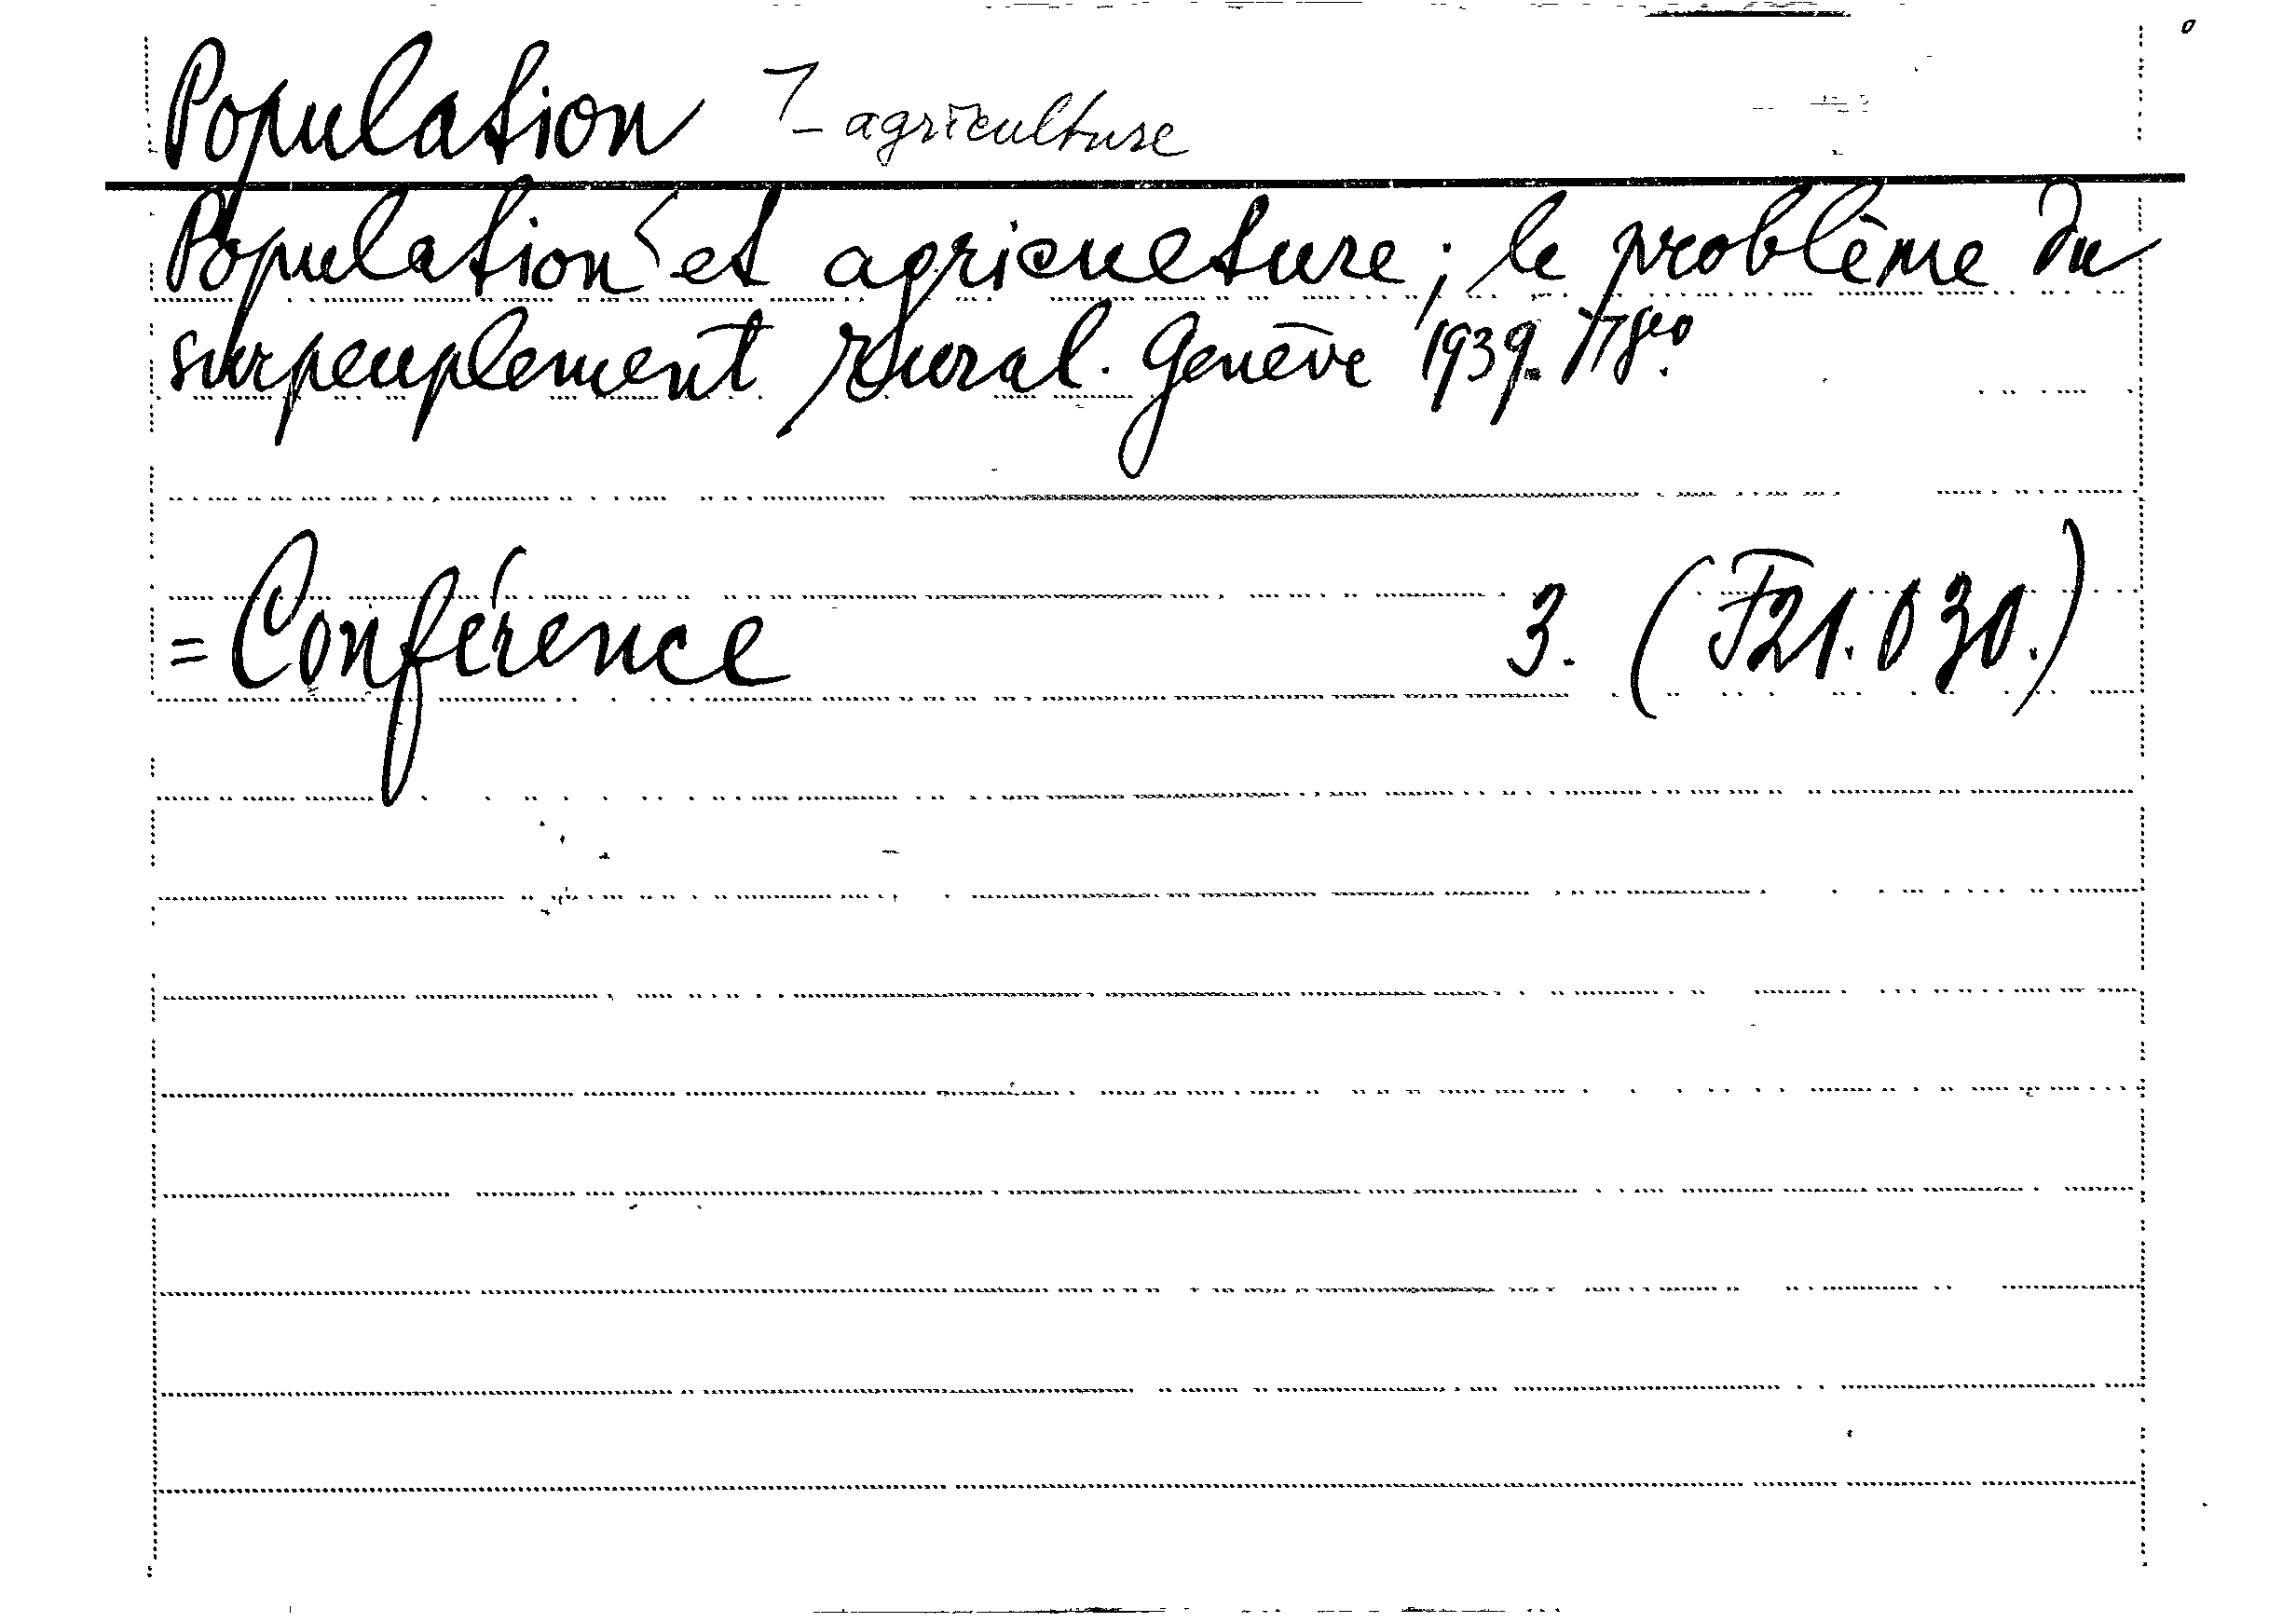 Population - agriculture
Population et agriculture; le problème du
surpeuplement rural. Genève 1939. 8vo.
= Conférence 3. (F21.030.)